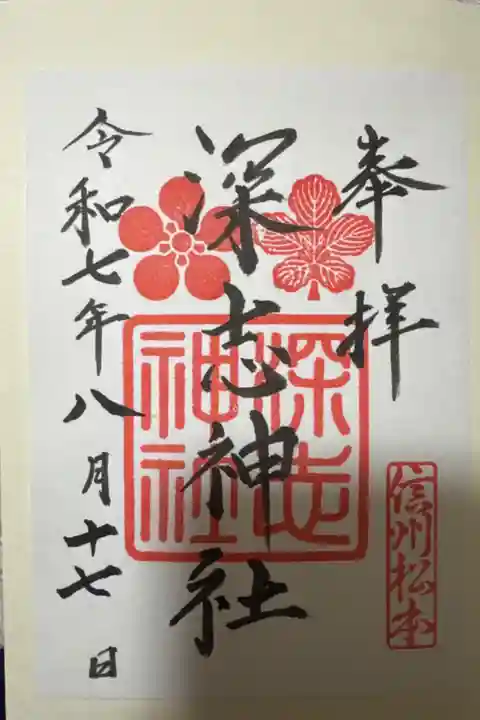 奉拝
信州松本
深志神社
深志神社
令和七年八月十七日